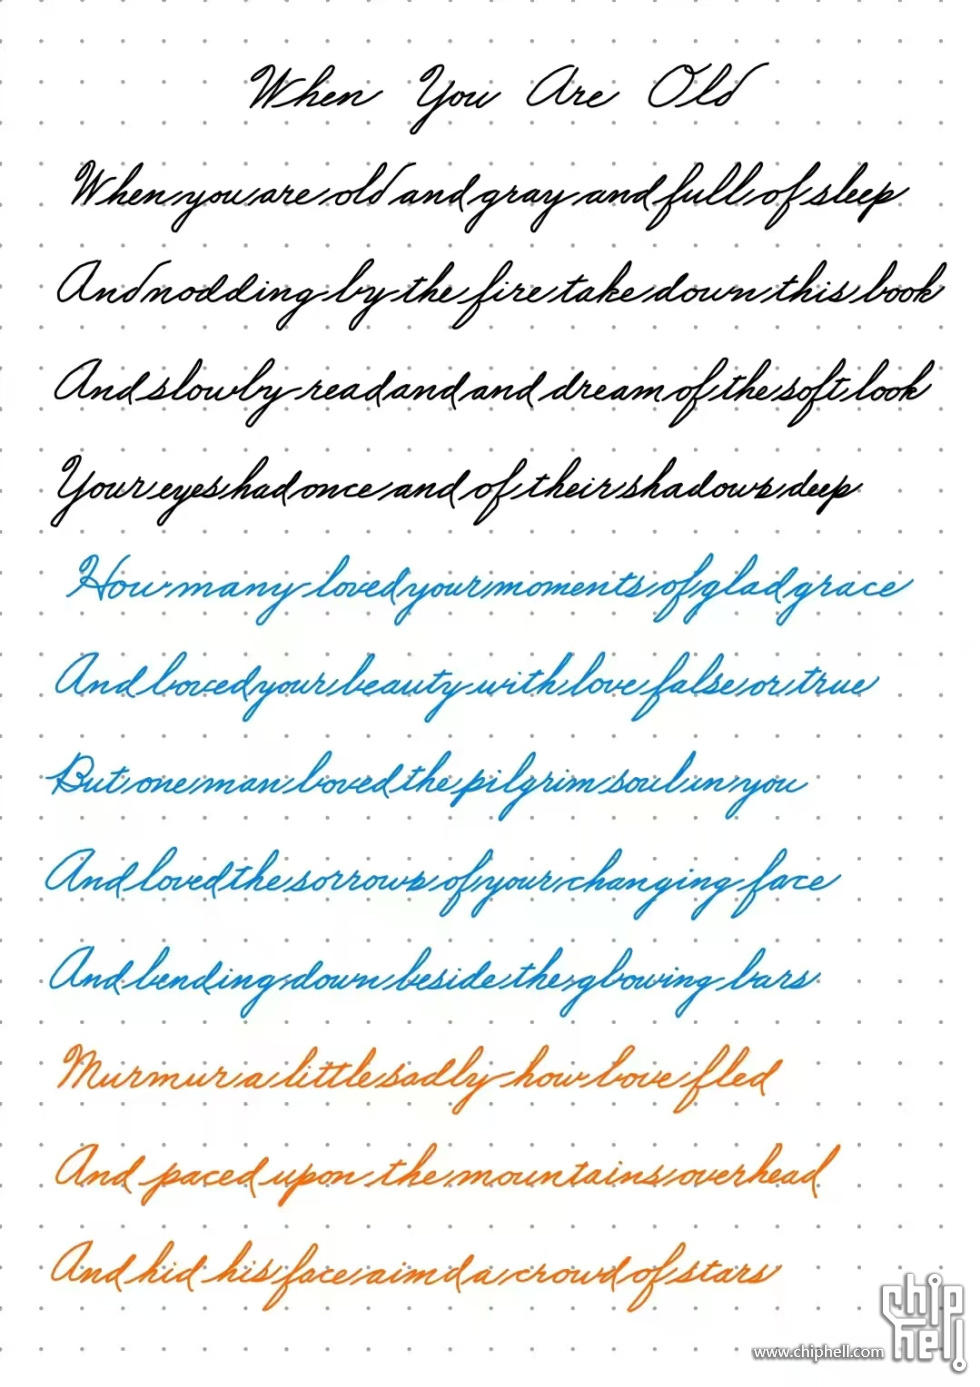 When You Are Old
When you are old and gray and full of sleep
And nodding by the fire take down this book
And slowly read and and dream of the soft look
Your eyes had once and of their shadows deep
How many loved your moments of glad grace
And loved your beauty with love false or true
But one man loved the pilgrim soul in you
And loved the sorrows of your changing face
And bending down beside the glowing bars
Murmur a little sadly how love fled
And paced upon the mountains overhead
And hid his face aimd a crowd of stars
chip
hell
www.chiphell.com